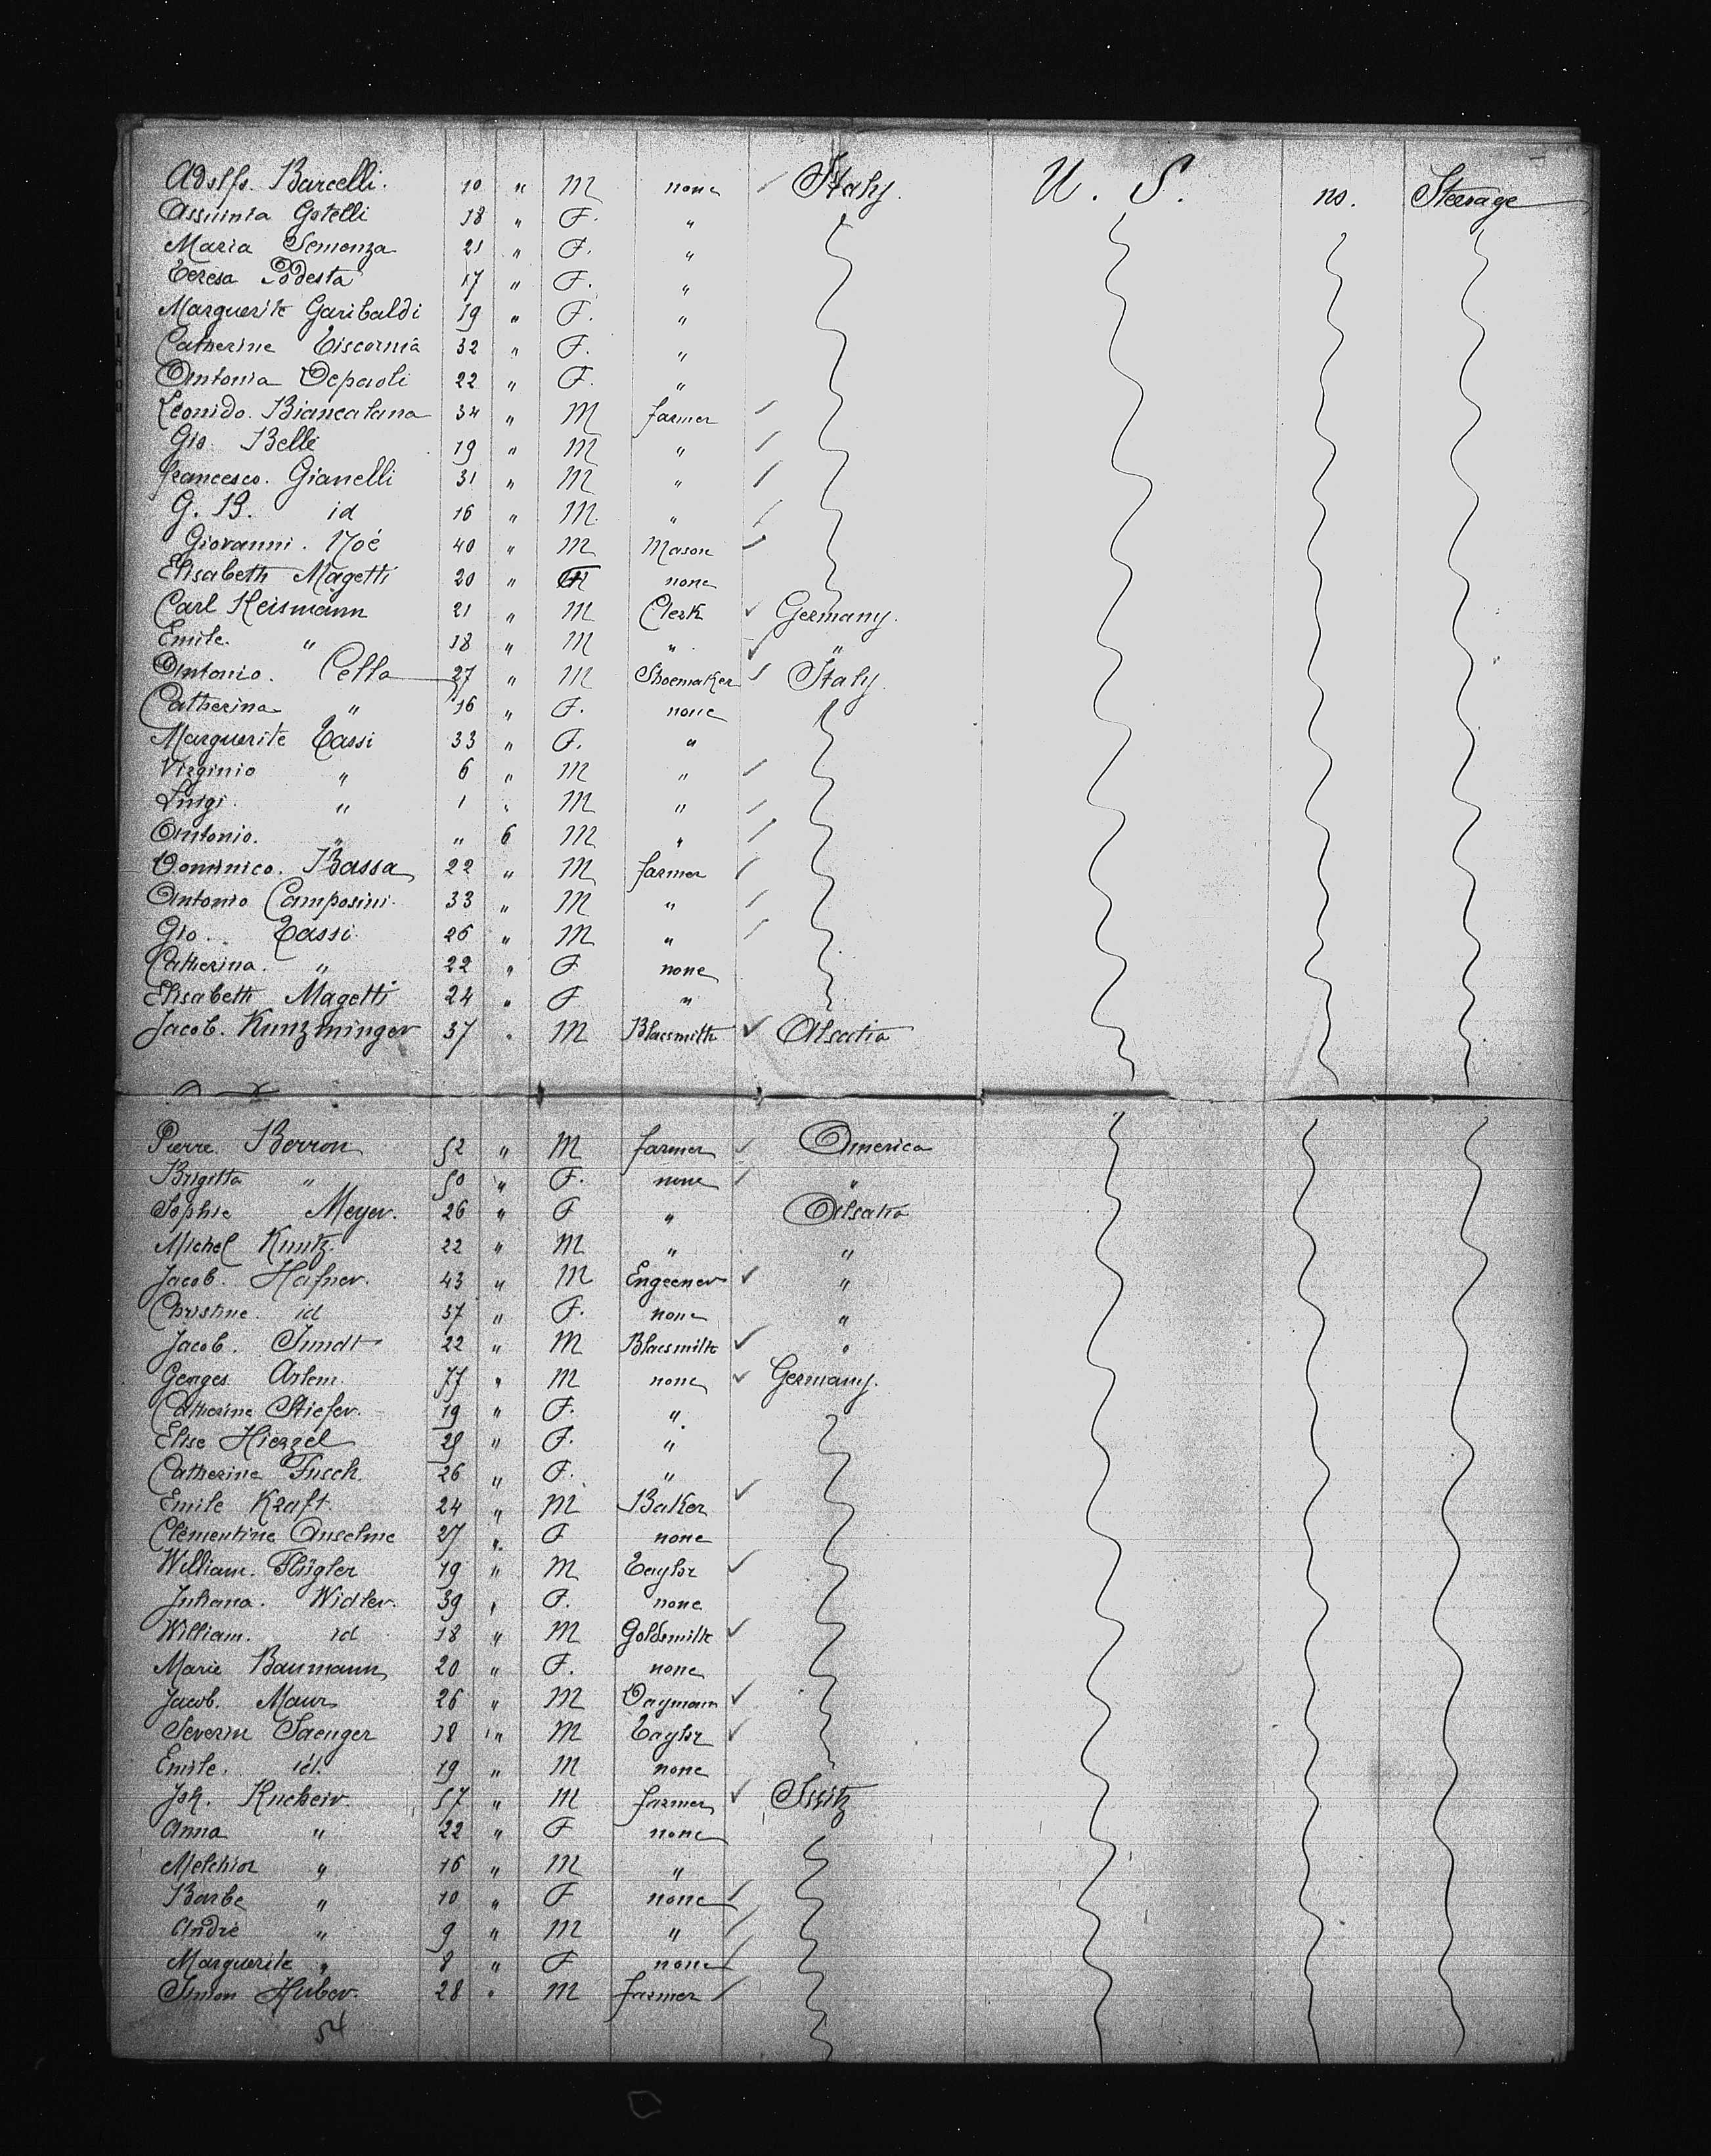 Adolfo. Barcelli. 10 " M none Italy. U. S. no. Steerage
Assunta Gotelli 18 " F. "
Maria Semonza 21 " F. "
Teresa Podesta 17 " F. "
Marguerite Garibaldi 19 " F. "
Catherine Tiscornia 32 " F. "
Antonia Depaoli 22 " F. "
Leonido. Biancalana 34 " M farmer
Gio Belli 19 " M "
francesco. Gianelli 31 " M "
G. B. id 16 " M. "
Giovanni. Noé 40 " M Mason
Elisabeth Magetti 20 " F none
Carl Heismann 21 " M Clerk Germany.
Emile. " 18 " M " "
Antonio. Cella 27 " M Shoemaker Italy.
Catherina " 16 " F. none
Marguerite Tassi 33 " F. "
Virginio " 6 " M "
Luigi. " 1 " M "
Antonio. " " 6 M "
Dominico. Bassa 22 " M farmer
Antonio Camposini. 33 " M "
Gio. Tassi 26 " M "
Catherina. " 22 " F none
Elisabeth Magetti 24 " F "
Jacob. Kunzminger 37 " M Blacsmith Alsatia
Pierre Berron 52 " M farmer America
Brigitta " 50 " F. none "
Sophie Meyer. 26 " F " Alsatia
Michel Kuntz. 22 " M " "
Jacob. Hafner. 43 " M Engeener "
Christine. id 37 " F. none "
Jacob. Sundt 22 " M Blacsmith "
Georges Artem. 77 " M none Germany.
Catherine Stiefer. 19 " F. "
Elise Hierzel 28 " F. "
Catherine Fusch. 26 " F. "
Emile Kraft. 24 " M Baker
Clementine Anselme 27 " F none
William. Flügler 19 " M Taylor
Juliana. Widler. 39 " F. none
William. id 18 " M Goldsmith
Marie Baumann 20 " F. none
Jacob. Maur 26 " M Daymann
Severin Saenger 18 " M Taylor
Emile. id. 19 " M none
Joh. Kucheir. 57 " M farmer
Anna " 22 " F none
Melchior " 16 " M "
Barbe " 10 " F none
André " 9 " M "
Marguerite " 8 " F none
Simon Huber. 28 " M farmer
54